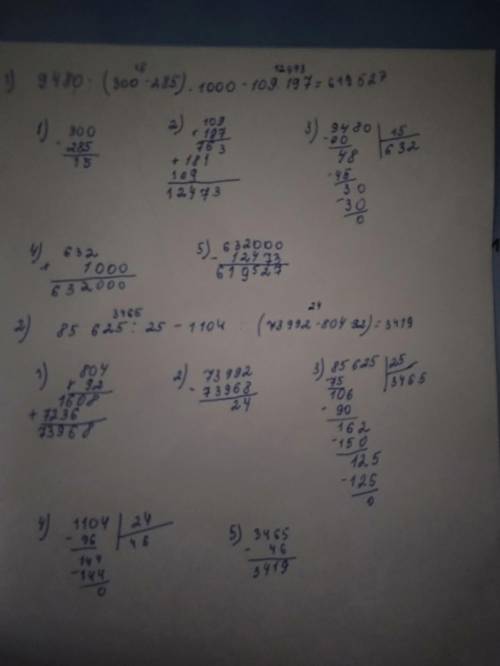 1) 9480 : (300 - 285) · 1000 - 109 · 197 = 619527
15
12473
1) 300
- 285
15
2) 109
× 197
763
+ 181
109
12473
3) 9480 | 15
- 90 632
48
- 45
30
- 30
0
4) 632
× 1000
632000
5) 632000
- 12473
619527
2) 85 625 : 25 - 1104 : (73992 - 804 · 92) = 3419
3465
24
1) 804
× 92
1608
+ 7236
73968
2) 73992
- 73968
24
3) 85625 | 25
75 3465
106
- 90
162
- 150
125
- 125
0
4) 1104 | 24
- 96 46
144
- 144
0
5) 3465
- 46
3419